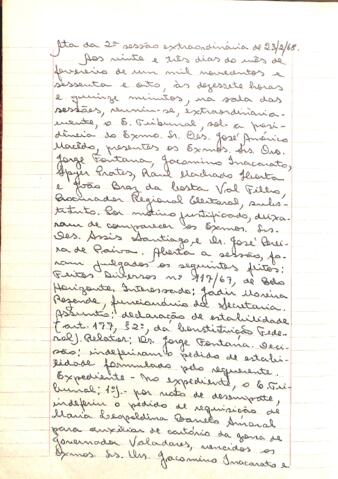 Ata da 2ª sessão extraordinária de 23/2/68.
Aos vinte e três dias do mês de
fevereiro de um mil novecentos e
sessenta e oito, às dezessete horas
e quinze minutos, na sala das
sessões, reuniu-se, extraordinaria-
mente, o E. Tribunal, sob a presi-
dência do Exmo. Sr. Des. José Américo
Macêdo, presentes os Exmos. Srs. Drs.
Jorge Fontana, Jacomino Inacarato,
Prates, Raul Machado Horta
e João Braz da Costa Val Filho,
Procurador Regional Eleitoral, subs-
tituto. Por motivo justificado, deixa-
ram de comparecer os Exmos. Srs.
Des. Assis Santiago, e Dr. José Perei-
ra de Paiva. Aberta a sessão, fo-
ram julgados os seguintes feitos:
Feitos Diversos nº 117/67, de Belo
Horizonte. Interessada: Jadir Moreira
Rezende, funcionária da Secretaria.
Assunto: declaração de estabilidade
(art. 177, § 2º, da Constituição Fede-
ral). Relator: Dr. Jorge Fontana. Deci-
são: indeferiram o pedido de estabi-
lidade formulado pelo requerente.
Expediente - No expediente, o E. Tri-
bunal: 1º) - por voto de desempate,
indeferiu o pedido de requisição de
Maria Leopoldina Amaral
para auxiliar de cartório da zona de
Governador Valadares, vencidos os
Exmos. Srs. Drs. Jacomino Inacarato e